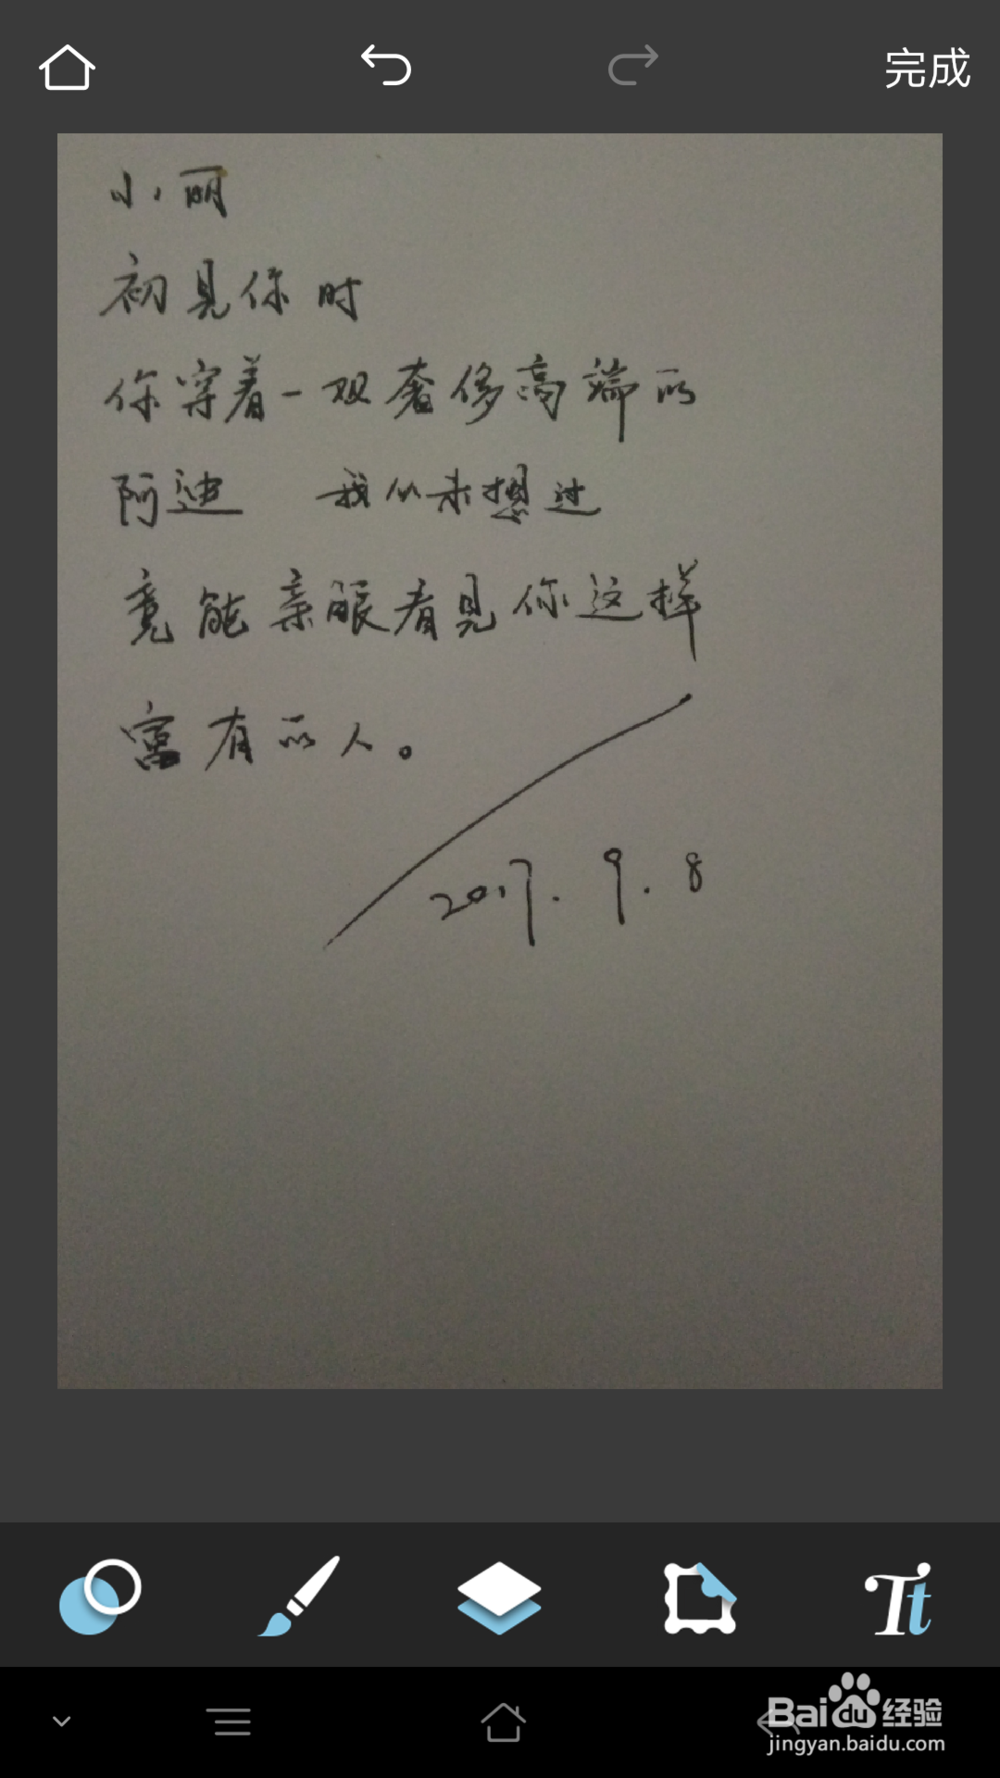 完成
小丽
初见你时
你穿着一双奢侈高端的
阿迪 我从未想过
竟能亲眼看见你这样
富有的人。
2017.9.8
Tt
Baidu经验
jingyan.baidu.com